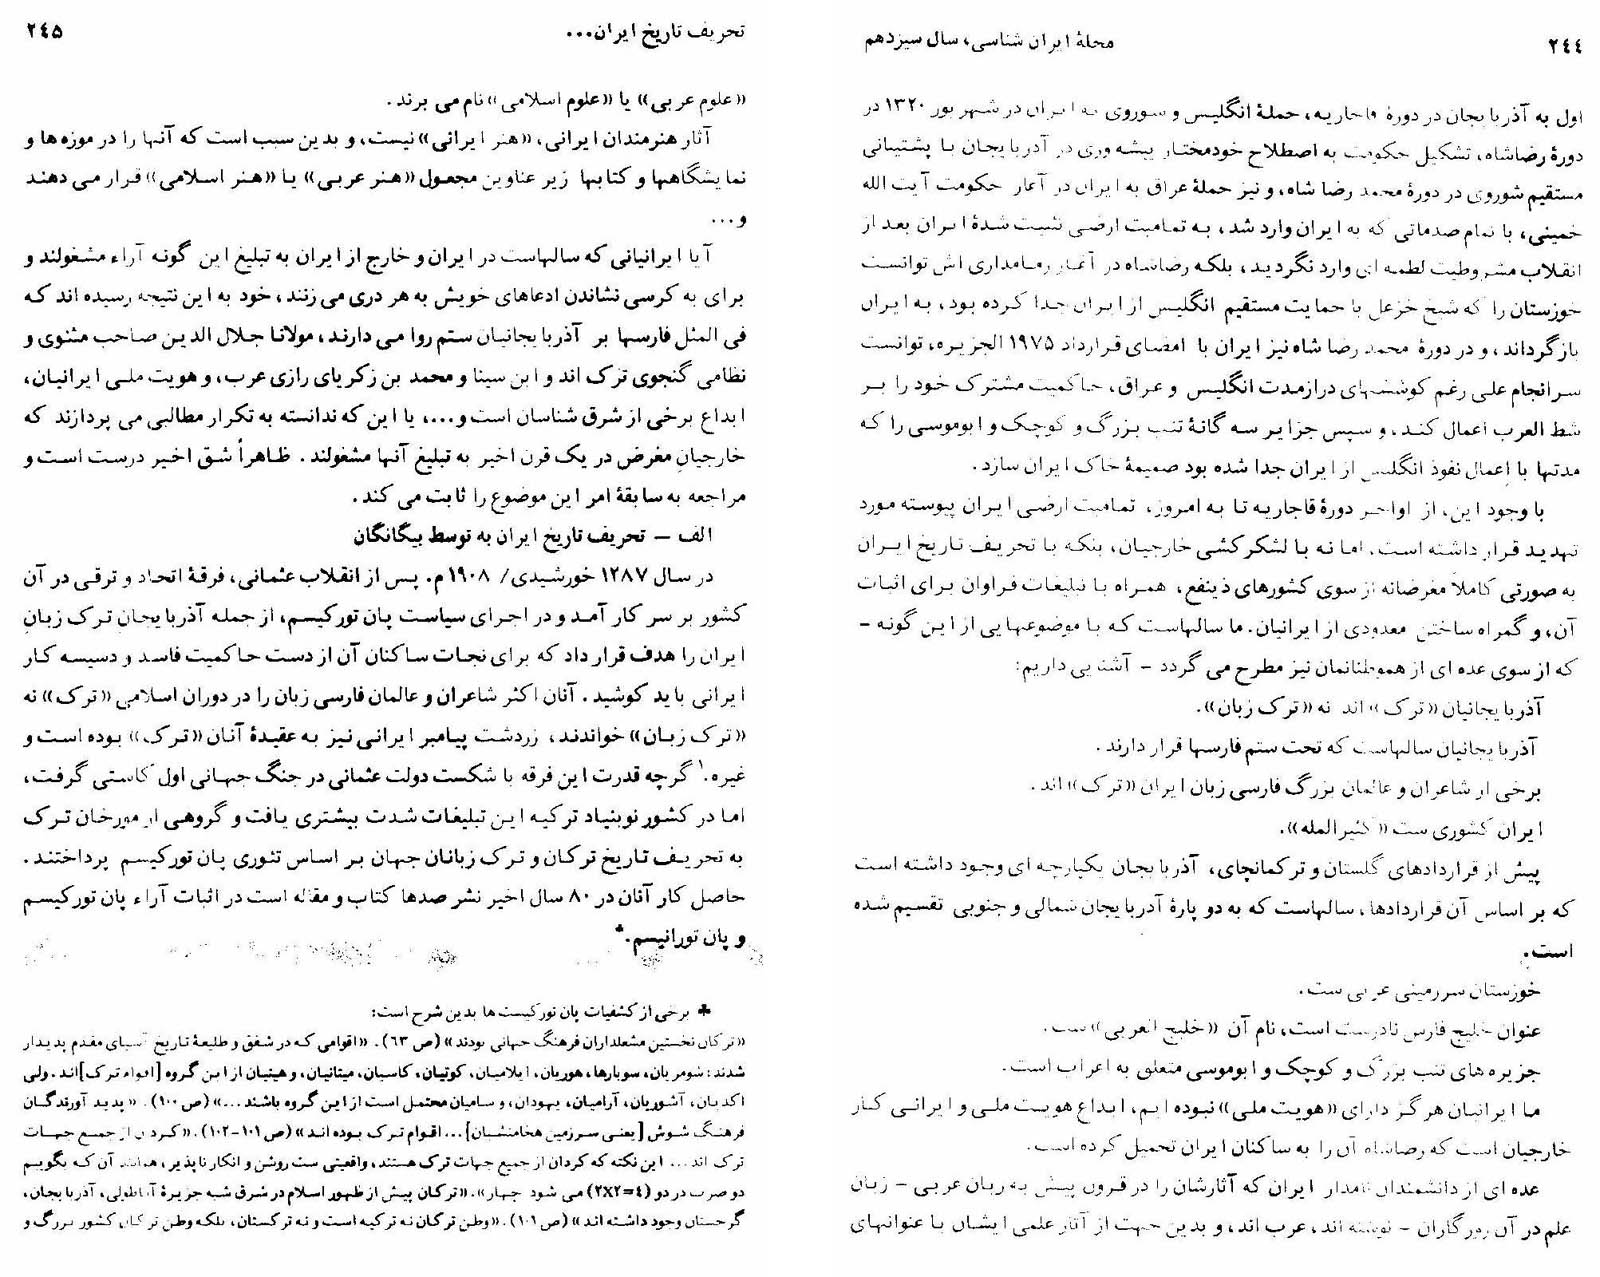 ۲٤٤
مجلهٔ ایران شناسی، سال سیزدهم
اول به آذربایجان در دورهٔ قاجاریه، حملهٔ انگلیس و شوروی به ایران در شهریور ۱۳۲۰ در
دورهٔ رضاشاه، تشکیل حکومت به اصطلاح خودمختار پیشه وری در آذربایجان با پشتیبانی
مستقیم شوروی در دورهٔ محمد رضا شاه، و نیز حملهٔ عراق به ایران در آغاز حکومت آیت الله
خمینی، با تمام صدماتی که به ایران وارد شد، به تمامیت ارضی تثبیت شدهٔ ایران بعد از
انقلاب مشروطیت لطمه ای وارد نگردید، بلکه رضاشاه در آغاز زمامداری اش توانست
خوزستان را که شیخ خزعل با حمایت مستقیم انگلیس از ایران جدا کرده بود، به ایران
بازگرداند، و در دورهٔ محمد رضا شاه نیز ایران با امضای قرارداد ۱۹۷۵ الجزیره، توانست
سرانجام علی رغم کوششهای درازمدت انگلیس و عراق، حاکمیت مشترک خود را بر
شط العرب اعمال کند، و سپس جزایر سه گانهٔ تنب بزرگ و کوچک و ابوموسی را که
مدتها با اعمال نفوذ انگلیس از ایران جدا شده بود ضمیمهٔ خاک ایران سازد.
با وجود این، از اواخر دورهٔ قاجاریه تا به امروز، تمامیت ارضی ایران پیوسته مورد
تهدید قرار داشته است. اما نه با لشکرکشی خارجیان، بلکه با تحریف تاریخ ایران
به صورتی کاملاً مغرضانه از سوی کشورهای ذینفع، همراه با تبلیغات فراوان برای اثبات
آن، و گمراه ساختن معدودی از ایرانیان. ما سالهاست که با موضوعهایی از این گونه –
که از سوی عده ای از هموطنانمان نیز مطرح می گردد – آشنایی داریم:
آذربایجانیان «ترک» اند نه «ترک زبان».
آذربایجانیان سالهاست که تحت ستم فارسها قرار دارند.
برخی از شاعران و عالمان بزرگ فارسی زبان ایران «ترک» اند.
ایران کشوری ست «کثیرالمله».
پیش از قراردادهای گلستان و ترکمانچای، آذربایجان یکپارچه ای وجود داشته است
که بر اساس آن قراردادها، سالهاست که به دو پارهٔ آذربایجان شمالی و جنوبی تقسیم شده
است.
خوزستان سرزمینی عربی ست.
عنوان خلیج فارس نادرست است، نام آن «خلیج العربی» ست.
جزیره های تنب بزرگ و کوچک و ابوموسی متعلق به اعراب است.
ما ایرانیان هرگز دارای «هویت ملی» نبوده ایم، ابداع هویت ملی و ایرانی کار
خارجیان است که رضاشاه آن را به ساکنان ایران تحمیل کرده است.
عده ای از دانشمندان نامدار ایران که آثارشان را در قرون پیش به زبان عربی – زبان
علم در آن روزگاران – نوشته اند، عرب اند، و بدین جهت از آثار علمی ایشان با عنوانهای
تحریف تاریخ ایران...
۲٤۵
«علوم عربی» یا «علوم اسلامی» نام می برند.
آثار هنرمندان ایرانی، «هنر ایرانی» نیست، و بدین سبب است که آنها را در موزه ها و
نمایشگاهها و کتابها زیر عناوین مجعول «هنر عربی» یا «هنر اسلامی» قرار می دهند
و...
آیا ایرانیانی که سالهاست در ایران و خارج از ایران به تبلیغ این گونه آراء مشغولند و
برای به کرسی نشاندن ادعاهای خویش به هر دری می زنند، خود به این نتیجه رسیده اند که
فی المثل فارسها بر آذربایجانیان ستم روا می دارند، مولانا جلال الدین صاحب مثنوی و
نظامی گنجوی ترک اند و ابن سینا و محمد بن زکریای رازی عرب، و هویت ملی ایرانیان،
ابداع برخی از شرق شناسان است و...، یا این که ندانسته به تکرار مطالبی می پردازند که
خارجیانِ مغرض در یک قرن اخیر به تبلیغ آنها مشغولند. ظاهراً شق اخیر درست است و
مراجعه به سابقهٔ امر این موضوع را ثابت می کند.
الف – تحریف تاریخ ایران به توسط بیگانگان
در سال ۱۲۸۷ خورشیدی/ ۱۹۰۸ م. پس از انقلاب عثمانی، فرقهٔ اتحاد و ترقی در آن
کشور بر سر کار آمد و در اجرای سیاست پان تورکیسم، از جمله آذربایجانِ ترک زبانِ
ایران را هدف قرار داد که برای نجات ساکنان آن از دست حاکمیت فاسد و دسیسه کار
ایرانی باید کوشید. آنان اکثر شاعران و عالمان فارسی زبان را در دوران اسلامی «ترک» نه
«ترک زبان» خواندند، زردشت پیامبر ایرانی نیز به عقیدهٔ آنان «ترک» بوده است و
غیره.۱ گرچه قدرت این فرقه با شکست دولت عثمانی در جنگ جهانی اول کاستی گرفت،
اما در کشور نوبنیاد ترکیه این تبلیغات شدت بیشتری یافت و گروهی از مورخان ترک
به تحریف تاریخ ترکان و ترک زبانان جهان بر اساس تئوری پان تورکیسم پرداختند.
حاصل کار آنان در ۸۰ سال اخیر نشر صدها کتاب و مقاله است در اثبات آراء پان تورکیسم
و پان تورانیسم.♣
♣ برخی از کشفیات پان تورکیست ها بدین شرح است:
«ترکان نخستین مشعلداران فرهنگ جهانی بودند» (ص ۶۳). «اقوامی که در شفق و طلیعهٔ تاریخ آسیای مقدم پدیدار
شدند: شومریان، سوبارها، هوریان، ایلامیان، کوتیان، کاسیان، میتانیان، و هیتیان از این گروه [اقوام ترک] اند. ولی
اکدیان، آشوریان، آرامیان، یهودان، و سامیان محتمل است از این گروه باشند...» (ص ۱۰۰). «پدید آورندگان
فرهنگ شوش [یعنی سرزمین هخامنشیان]... اقوام ترک بوده اند» (ص ۱۰۱-۱۰۲). «کردان از جمیع جهات
ترک اند... این نکته که کردان از جمیع جهات ترک هستند، واقعیتی ست روشن و انکارناپذیر، همانند آن که بگوییم
دو ضرب در دو (۲X۲=٤) می شود چهار». «ترکان پیش از ظهور اسلام در شرق شبه جزیرهٔ آناطولی، آذربایجان،
گرجستان وجود داشته اند» (ص ۱۰۱). «وطن ترکان نه ترکیه است و نه ترکستان، بلکه وطن ترکان کشور بزرگ و